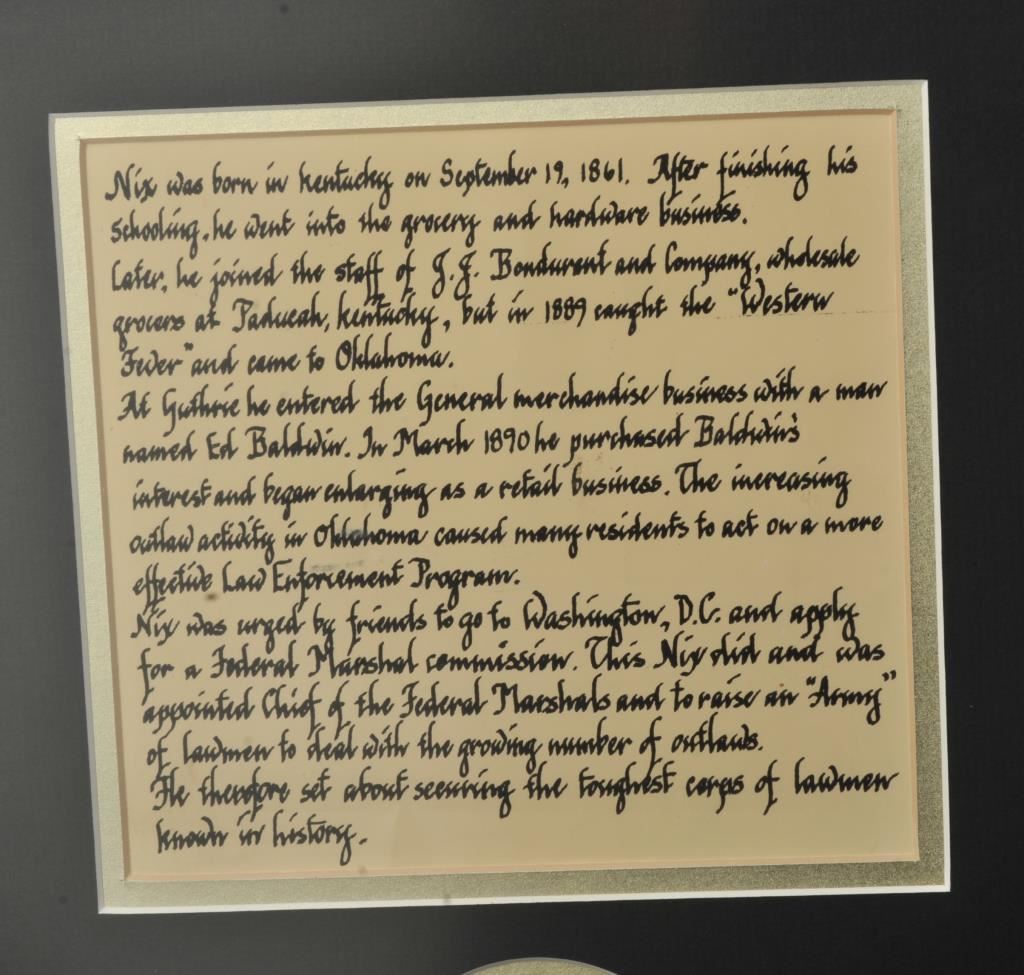 Nix was born in Kentucky on September 19, 1861. After finishing his
schooling, he went into the grocery and hardware business.
Later, he joined the staff of J.J. Bondurent and Company, wholesale
grocers at Paducah, Kentucky, but in 1889 caught the "Western
Fever" and came to Oklahoma.
At Guthrie he entered the General merchandise business with a man
named Ed Baldwin. In March 1890 he purchased Baldwin's
interest and began enlarging as a retail business. The increasing
outlaw activity in Oklahoma caused many residents to act on a more
effective Law Enforcement Program.
Nix was urged by friends to go to Washington, D.C. and apply
for a Federal Marshal commission. This Nix did and was
appointed Chief of the Federal Marshals and to raise an "Army"
of lawmen to deal with the growing number of outlaws.
He therefore set about securing the toughest corps of lawmen
known in history.